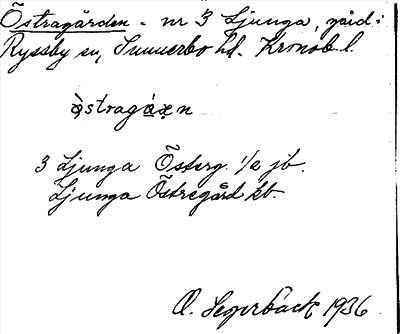 Östragården - nr 3 Ljunga, gård i
Ryssby sn, Sunnerbo hd. Kronob l.
östragáṛn
3 Ljunga Österg. 1/2 jb.
Ljunga Östregård kb.
O. Segerbäck 1936